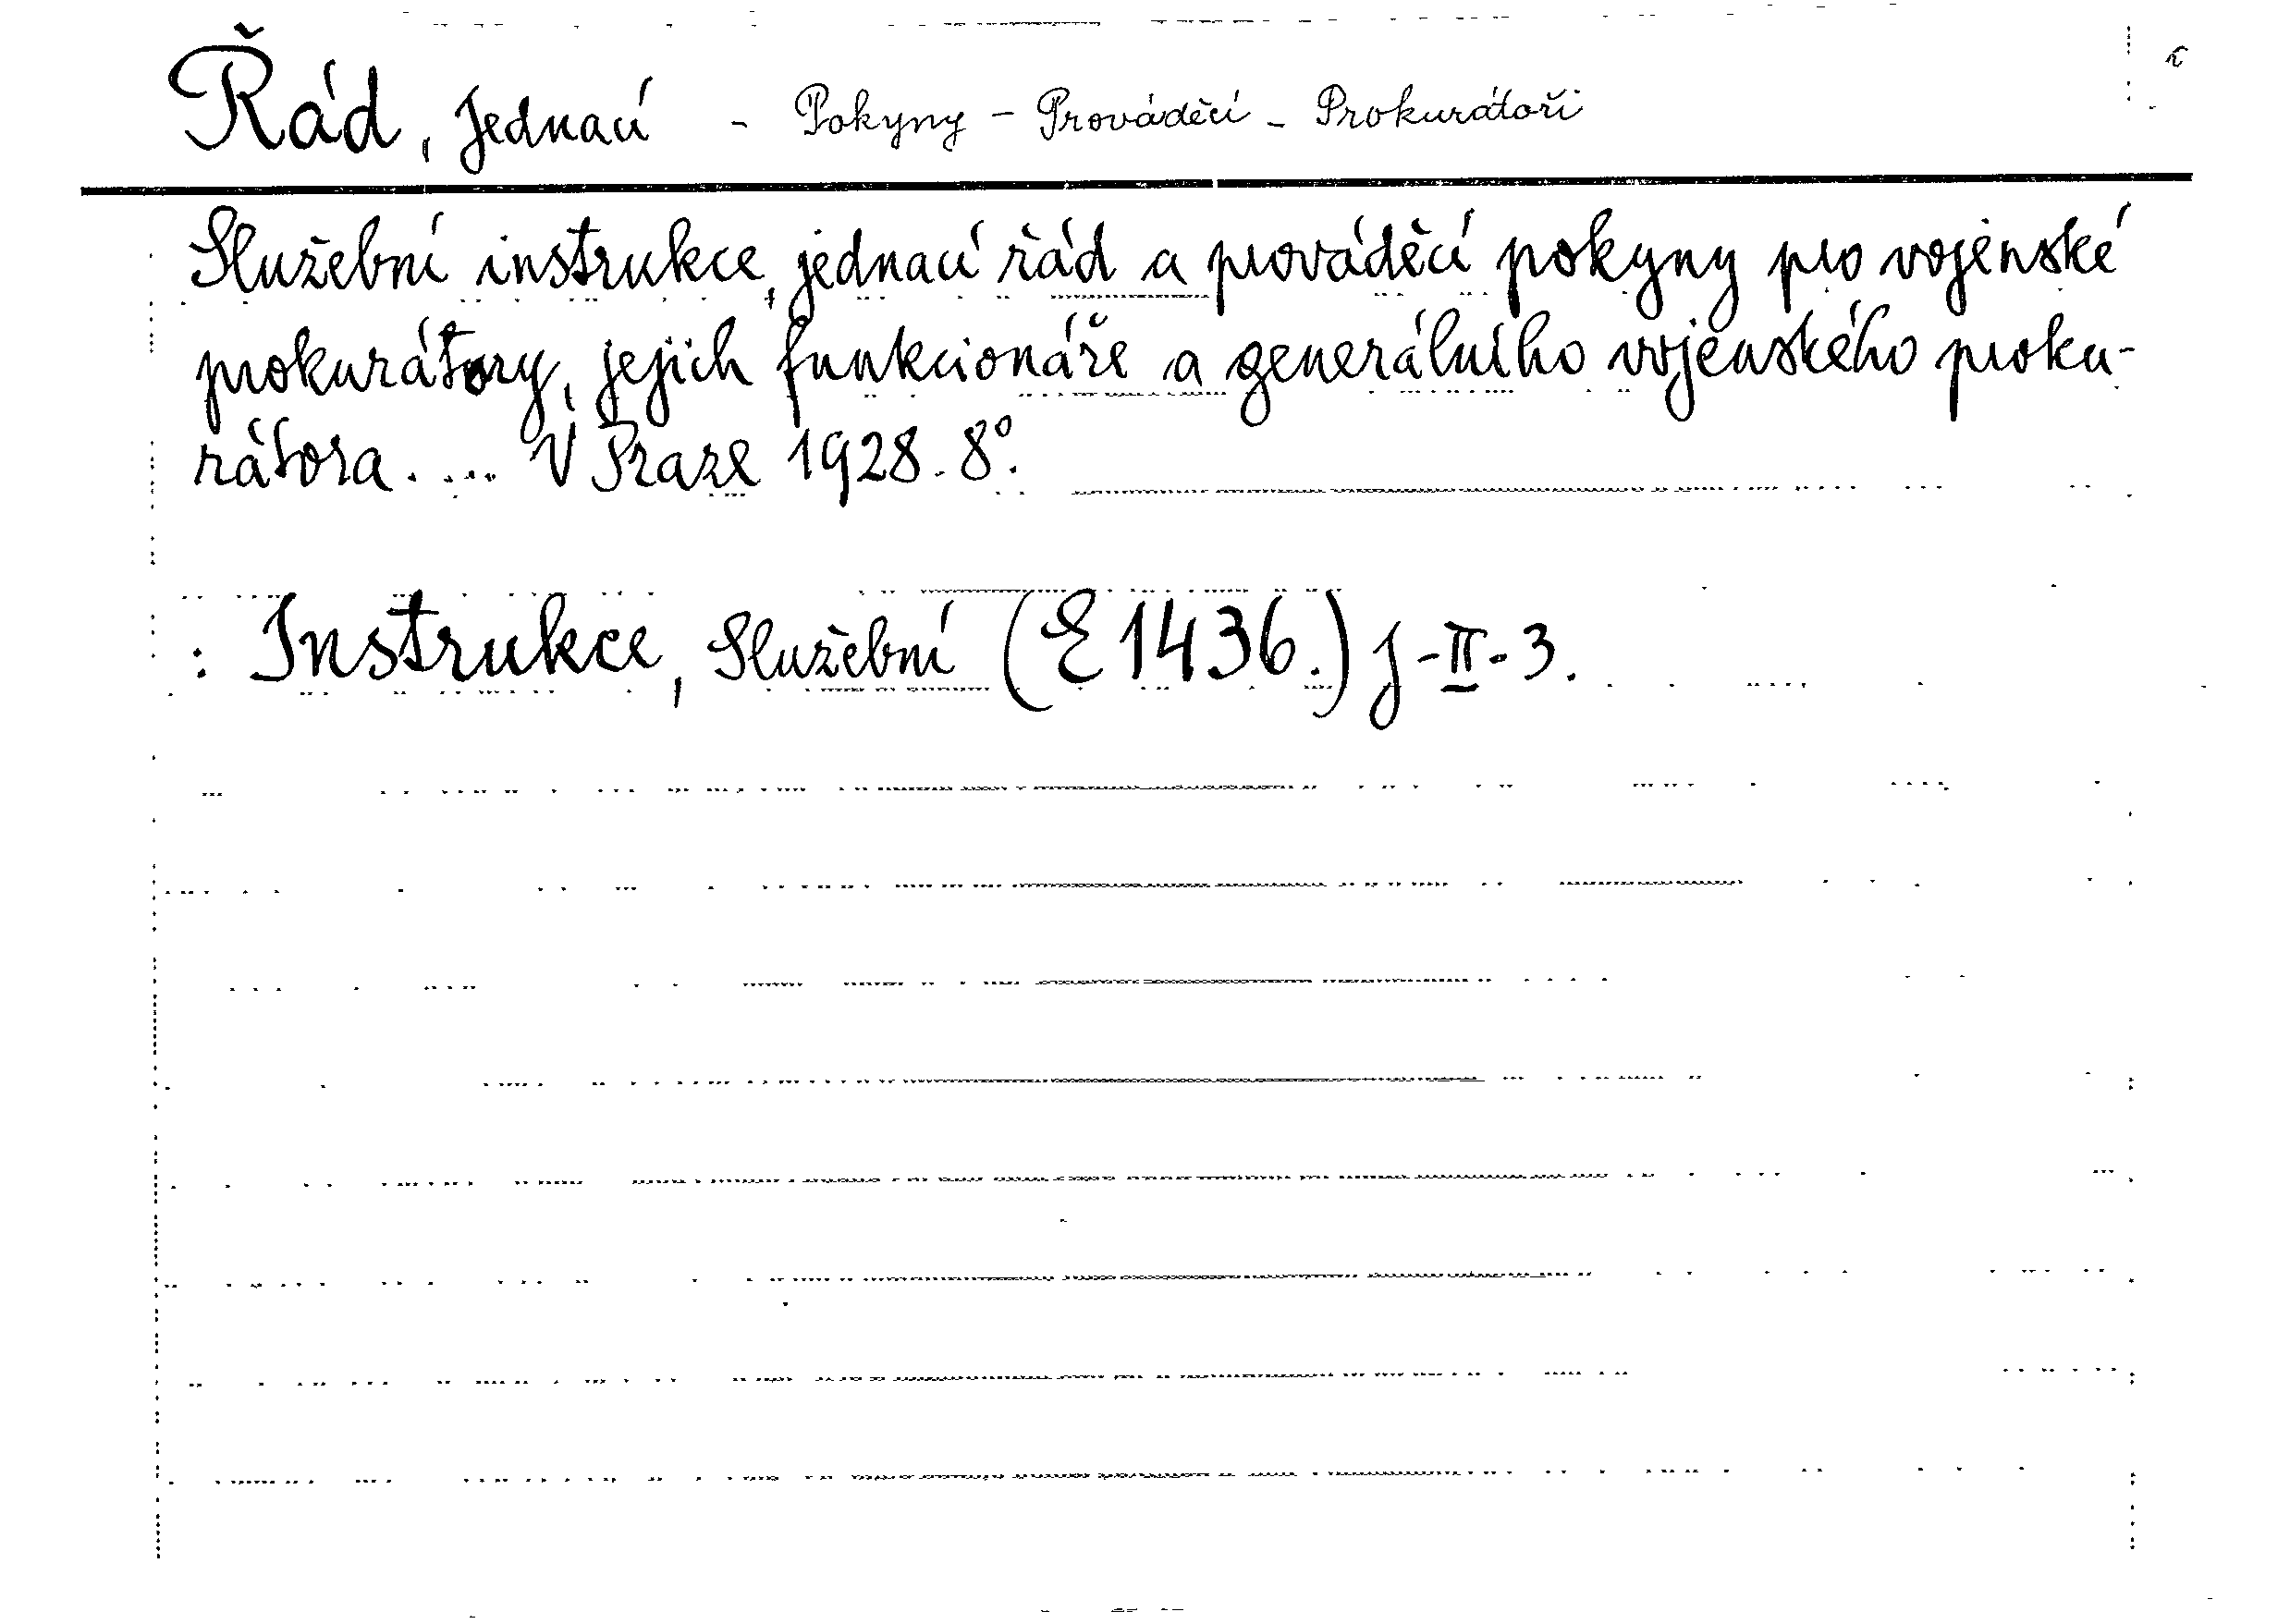 Řád, Jednací - Pokyny - Prováděcí - Prokurátoři
Služební instrukce, jednací řád a prováděcí pokyny pro vojenské
prokurátory, jejich funkcionáře a generálního vojenského proku-
rátora. ... V Praze 1928. 8°.
: Instrukce, Služební (E 1436.) J-II-3.